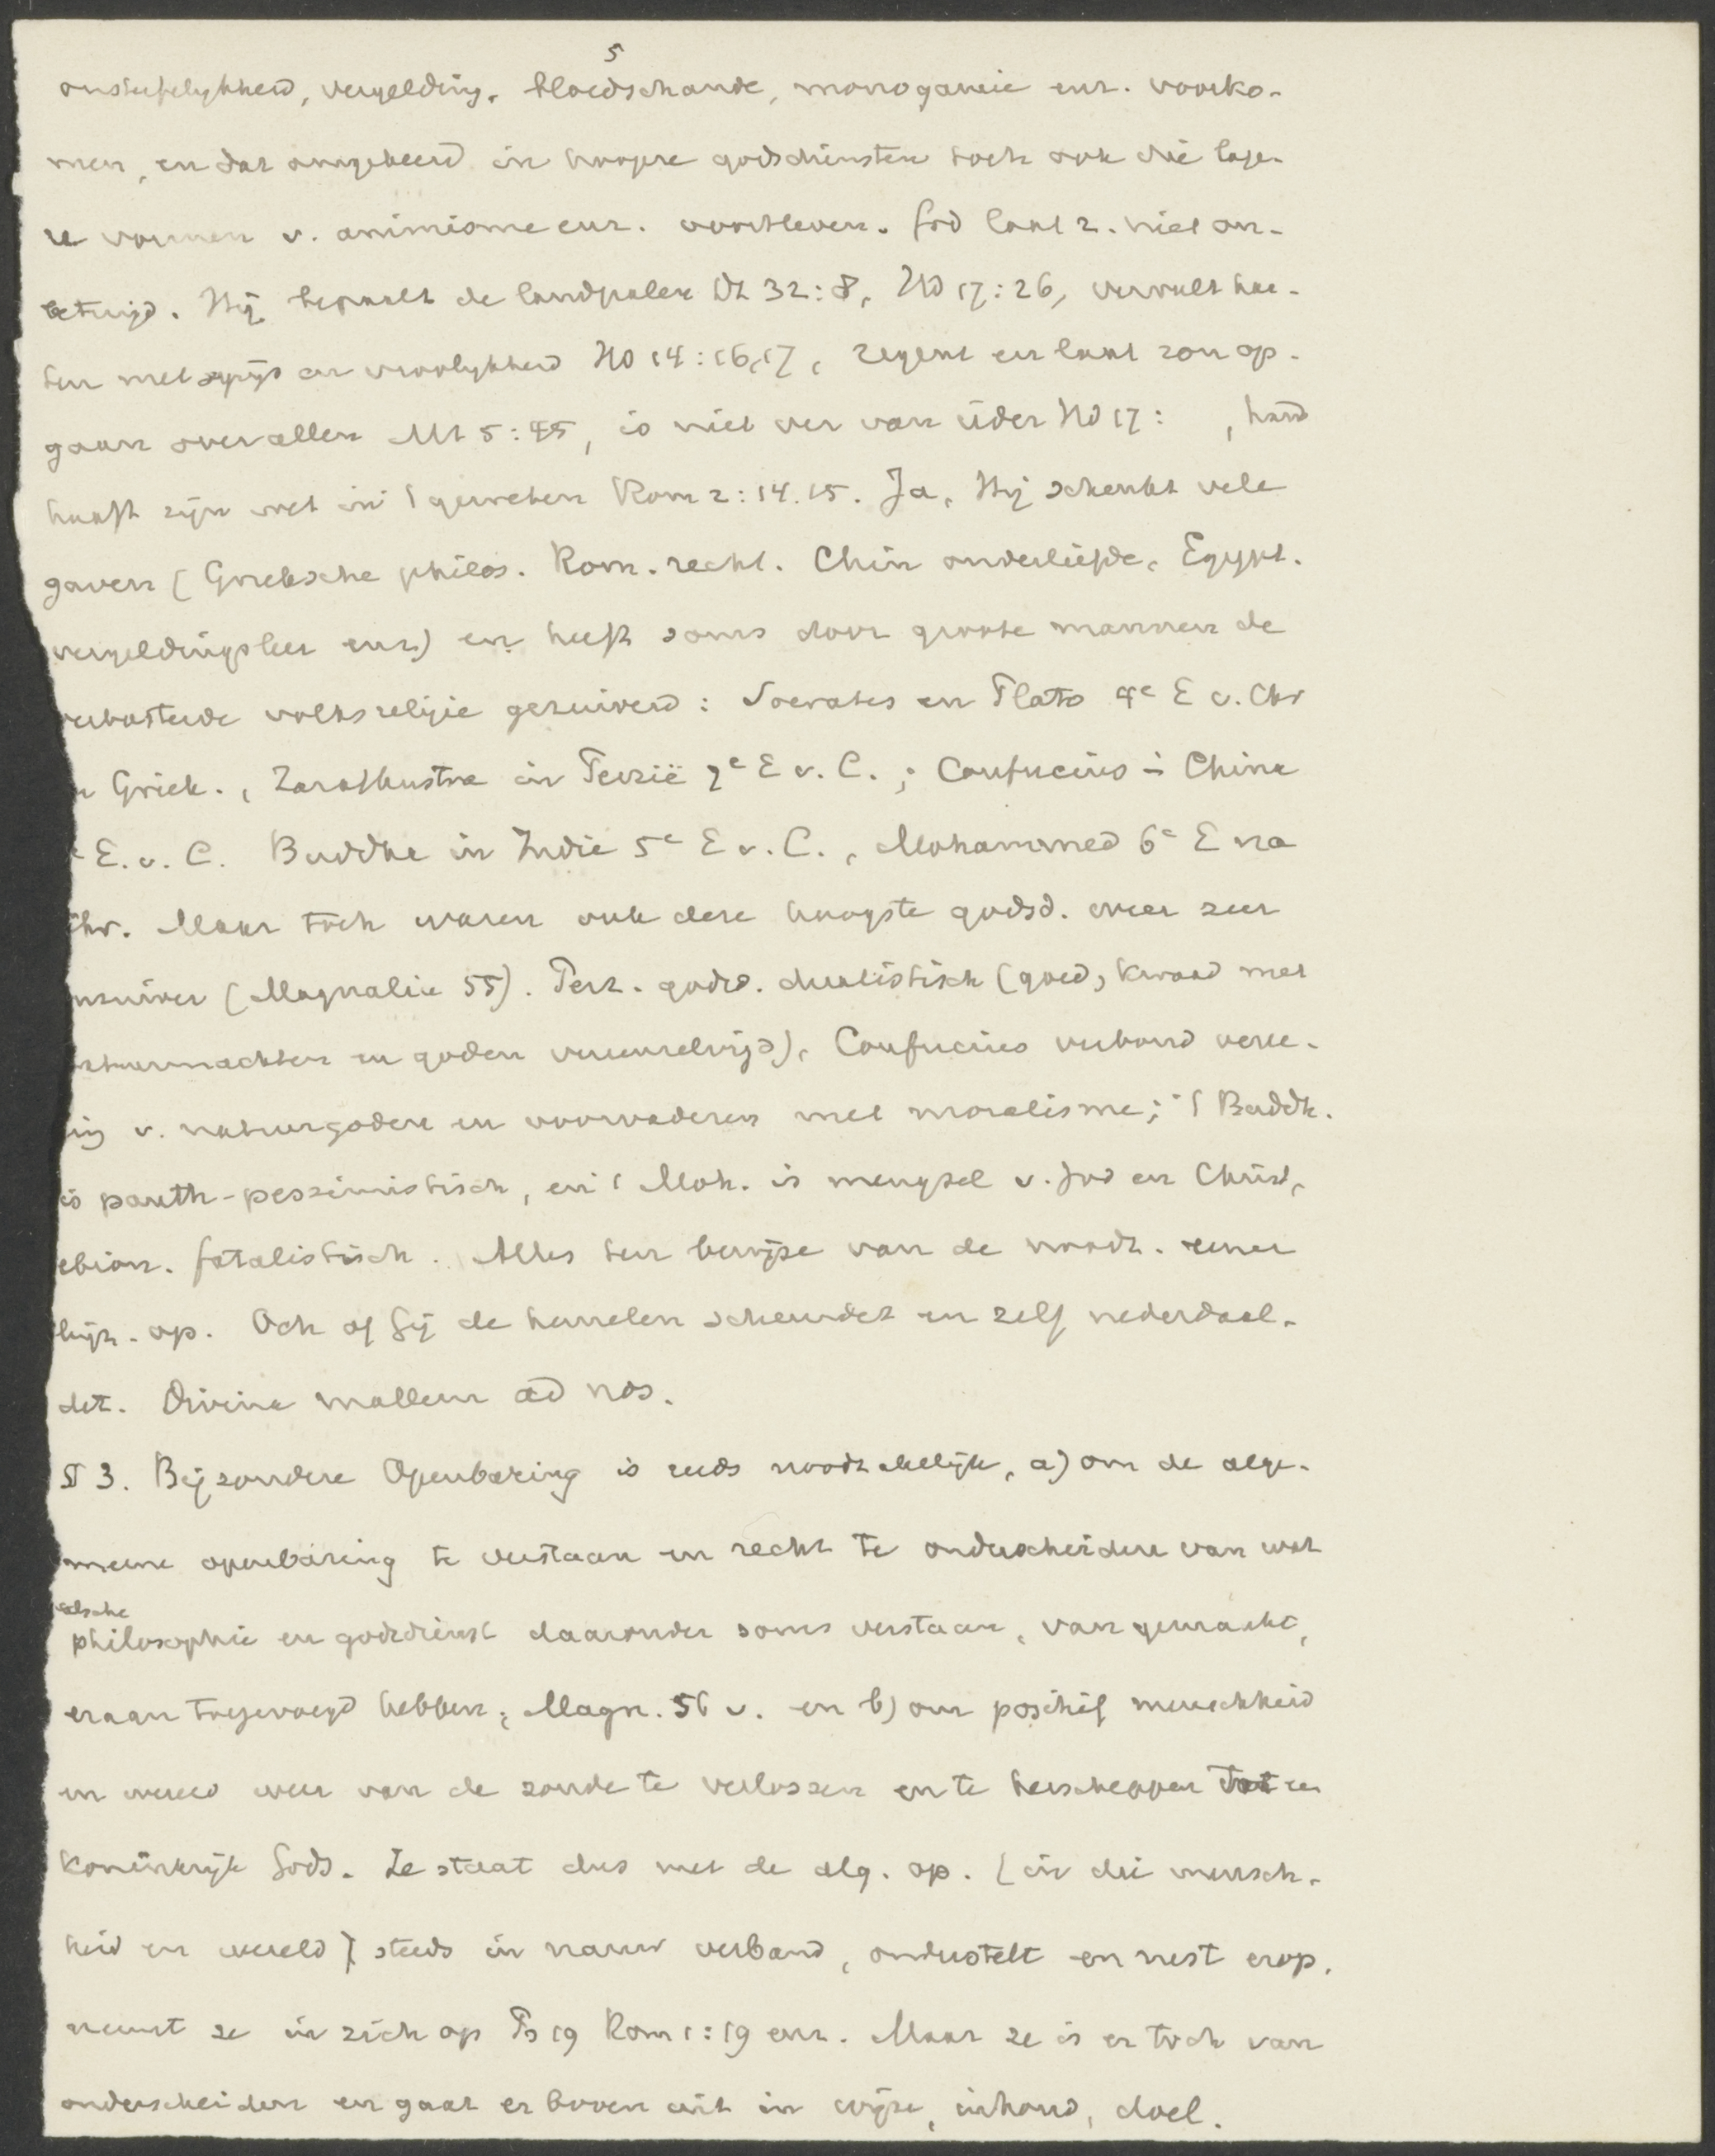 5
onsterfelykheid, vergelding, bloedschande, monogamie enz. voorko-
men, en dat omgekeerd in hoogere godsdiensten toch ook die lage-
re vormen v. animisme enz. voortleven. God laat z. niet on-
betuigd. Hij bepaalt de landpalen Dt 32:8, HD 17:26, vervult har-
ten met spijs en vroolykheid HD 14:16,17, regent en laat zon op-
gaan over allen Mt 5:45, is niet ver van ieder HD 17: , hand
haaft zijn wet in 't geweten Rom 2:14.15. Ja, Hij schenkt vele
gaven (Grieksche philos. Rom. recht. Chin ouderliefde, Egypt.
vergeldingsleer enz) en heeft soms door groote mannen de
verbasterde volksreligie gezuiverd: Socrates en Plato 4e E v. Chr
n Griek., Zarathustra in Perzië 7e E v. C.; Confucius i China
e E. v. C. Buddha in Indie 5e E v. C., Mohammed 6e E na
Chr. Maar toch waren ook deze hoogste godsd. weer zeer
onzuiver (Magnalia 55). Perz. godsd. dualistisch (goed, kwaad met
natuurmachten en goden vereenzelvigd), Confucius verbond veree-
ing v. natuurgoden en voorvaderen met moralisme; 't Buddh.
is panth-pessimistisch, en 't Moh. is mengsel v. Jod en Christ,
ebion. fatalistisch. Alles ten bewijze van de noodz. eener
bijz. op. Och of Gij de hemelen scheurdet en zelf nederdaal-
det. Divina mallem ad nos.
§ 3. Bijzondere Openbaring is reeds noodzakelijk, a) om de alge-
meene openbaring te verstaan en recht te onderscheiden van wat
valsche
philosophie en godsdienst daaronder soms verstaan, van gemaakt,
eraan toegevoegd hebben, Magn. 56 v. en b) om positief menschheid
en wereld weer van de zonde te verlossen en te herscheppen tot een
koninkrijk Gods. Ze staat dus met de alg. op. (in die mensch-
heid en wereld) steeds in nauw verband, onderstelt en rust erop,
neemt ze in zich op Ps 19 Rom 1:19 enz. Maar ze is er toch van
onderscheiden en gaat er boven uit in wijze, inhoud, doel.